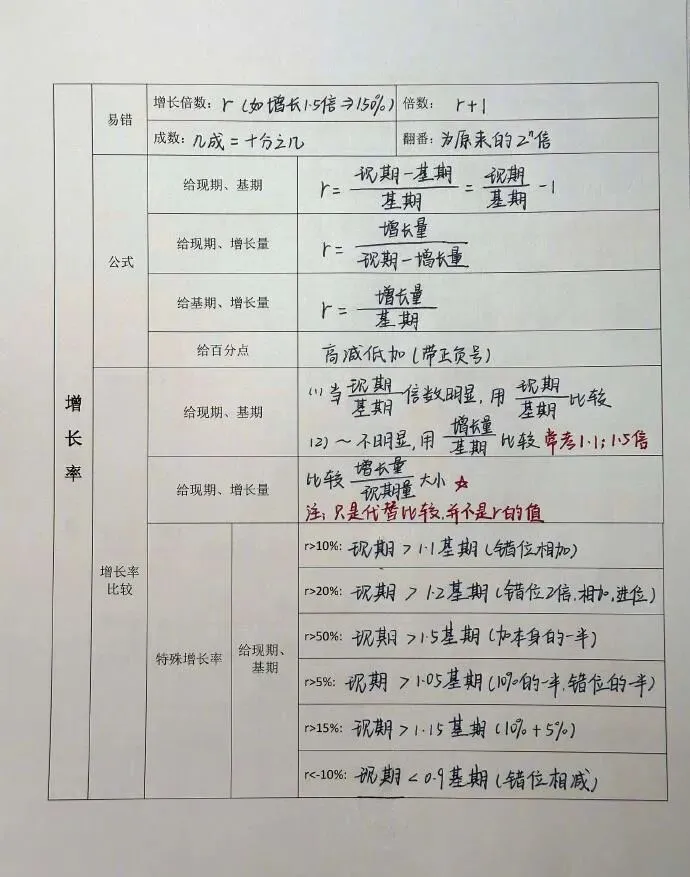 增长率
易错
增长倍数: r (如增长1.5倍⇒150%)
倍数: r+1
成数: 几成=十分之几
翻番: 为原来的2ⁿ倍
公式
给现期、基期
r=(现期-基期)/基期=现期/基期-1
给现期、增长量
r=增长量/(现期-增长量)
给基期、增长量
r=增长量/基期
给百分点
高减低加(带正负号)
增长率
比较
给现期、基期
(1) 当现期/基期倍数明显, 用现期/基期比较
(2) ~不明显, 用增长量/基期比较 常考1.1; 1.5倍
给现期、增长量
比较增长量/现期量大小 ☆
注: 只是代替比较, 并不是r的值
特殊增长率
给现期、
基期
r>10%: 现期>1.1基期(错位相加)
r>20%: 现期>1.2基期(错位2倍,相加,进位)
r>50%: 现期>1.5基期(加本身的一半)
r>5%: 现期>1.05基期(10%的一半,错位的一半)
r>15%: 现期>1.15基期(10%+5%)
r<-10%: 现期<0.9基期(错位相减)